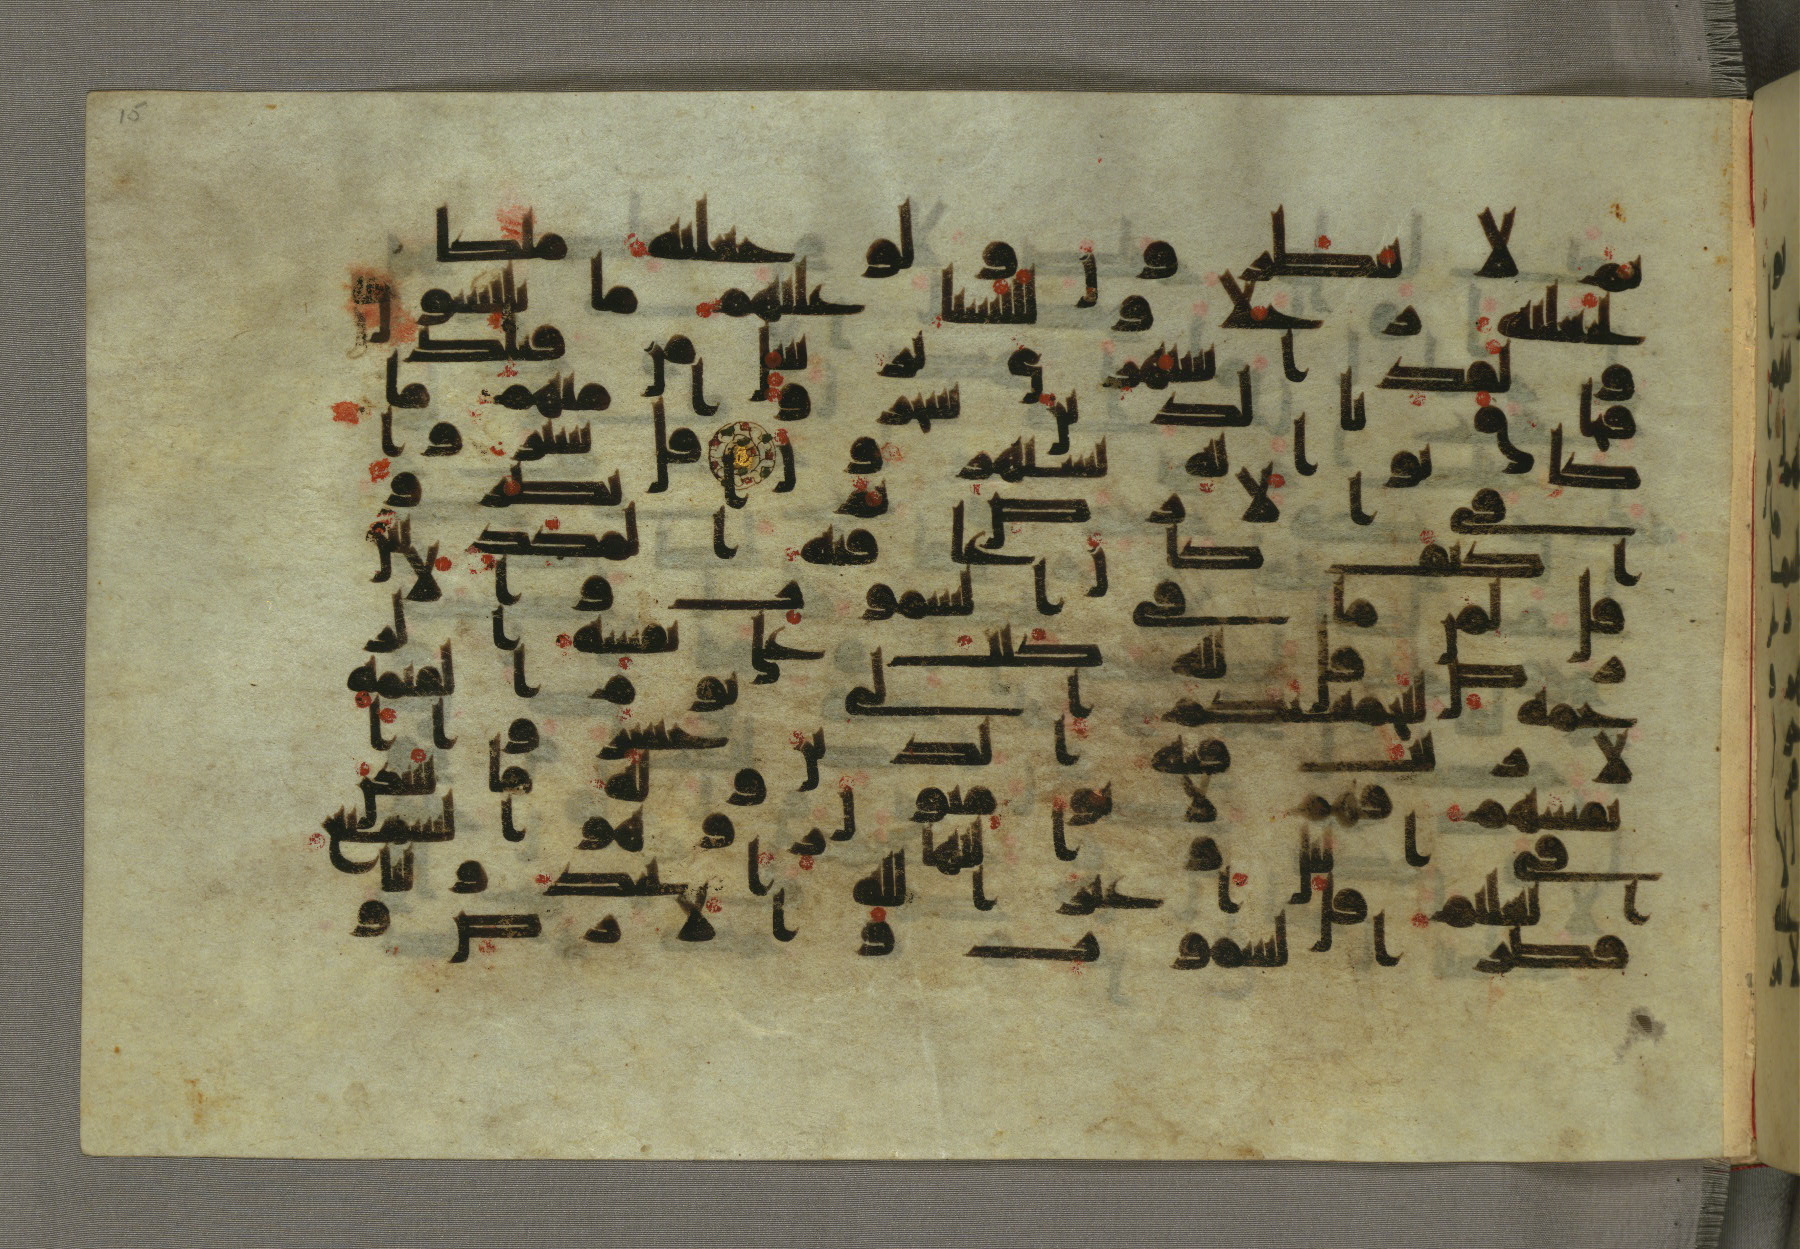 ثم لا ينظرون ولو جعلنه ملكا
لجعلنه رجلا وللبسنا عليهم ما يلبسون
ولقد استهزى برسل من قبلك
فحاق بالذين سخروا منهم ما
كانوا به يستهزون قل سيروا
في الارض ثم انظرو
ا كيف كان عقبة المكذبين
قل لمن ما في السموت والار
ض قل لله كتب على نفسه الر
حمة ليجمعنكم الى يوم القيمة
لا ريب فيه الذين خسروا ا
نفسهم فهم لا يومنون وله ما سكن
في اليل والنهار وهو السميع
العليم قل اغير الله اتخذ وليا
فطر السموت والارض و
15